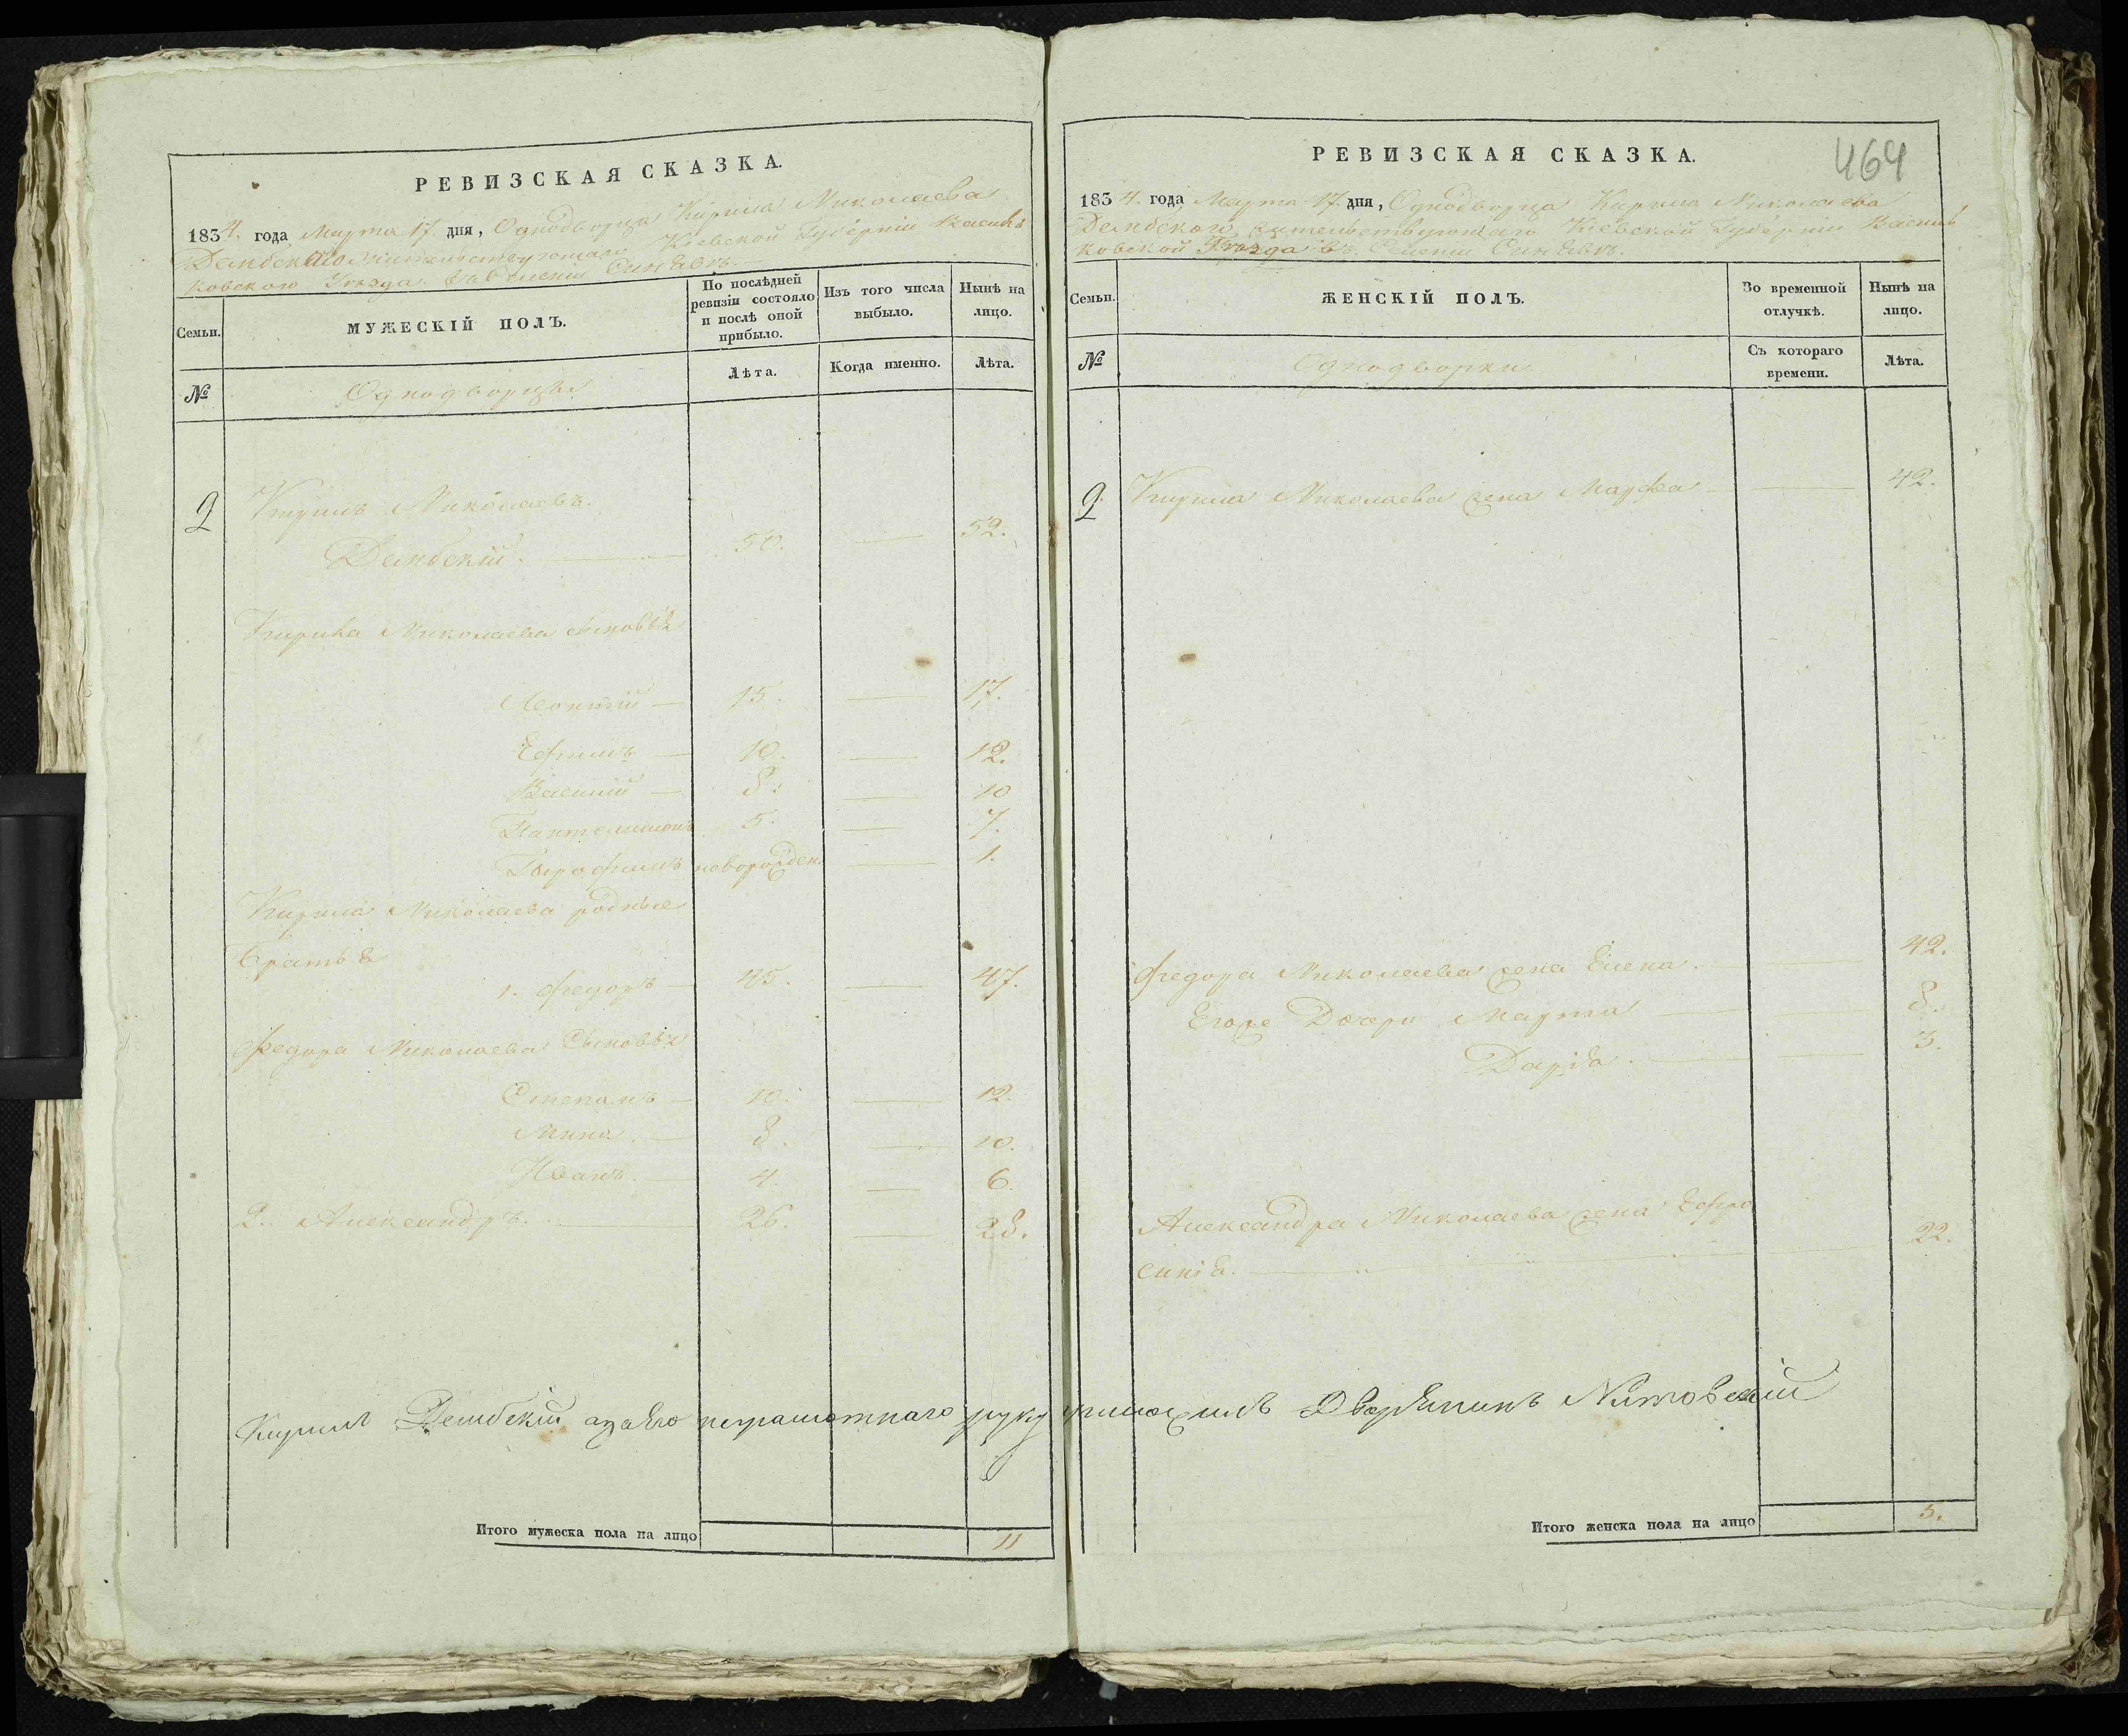 РЕВИЗСКАЯ СКАЗКА.
1834. года Марта 17. дня, Однодворца Кирила Николаева
Дембскаго жительствующаго Кіевской Губерніи Василь
ковского Уезда въ Селеніи Синявѣ.
Семьи.
МУЖЕСКІЙ ПОЛЪ.
По послѣдней ревизіи состояло и послѣ оной прибыло.
Изъ того числа выбыло.
Нынѣ на лицо.
№
Однодворцы
Лѣта.
Когда именно.
Лѣта.
2 Кирилъ Николаевъ.
Дембскій. 50. 52.
Кирила Николаева сыновья
15. 17.
Ефимъ 10. 12.
Василій 8. 10
Пантелимонъ 5. 7.
новорожден. 1.
Кирила Николаева родные
братья
1. Федоръ 45. 47.
Федора Николаева Сыновья
Степанъ 10. 12.
Мина 8. 10.
Иванъ. 4. 6.
2. Александръ. 26. 28.
Кирилъ Дембскій а за его неграмотнаго руку приложилъ Дворянинъ
Итого мужеска пола на лицо 11
464
РЕВИЗСКАЯ СКАЗКА.
1834. года Марта 17. дня, Однодворца Кирила Николаева
Дембского жительствующаго Кіевской Губерніи Василь
ковской Уезда въ Селеніи Синявѣ.
Семьи.
ЖЕНСКІЙ ПОЛЪ.
Во временной отлучкѣ.
Нынѣ на лицо.
№
Однодворки
Съ котораго времени.
Лѣта.
2. Кирила Николаева жена Марфа 42.
Федора Николаева жена Елена. 42.
Егоже Дочери Марта 8.
Дарія. 3.
Александра Николаева жена Ефро
синія. 22.
Итого женска пола на лицо 5.